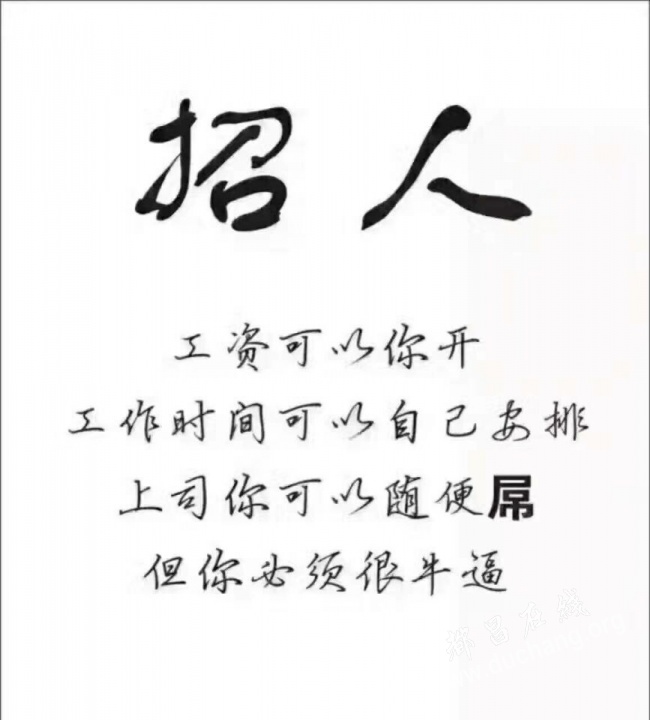 招人
工资可以你开
工作时间可以自己安排
上司你可以随便屌
但你必须很牛逼